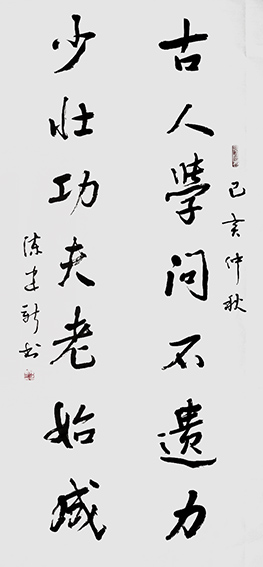 古人學问不遗力
己亥仲秋
少壮功夫老始成
陈建新书